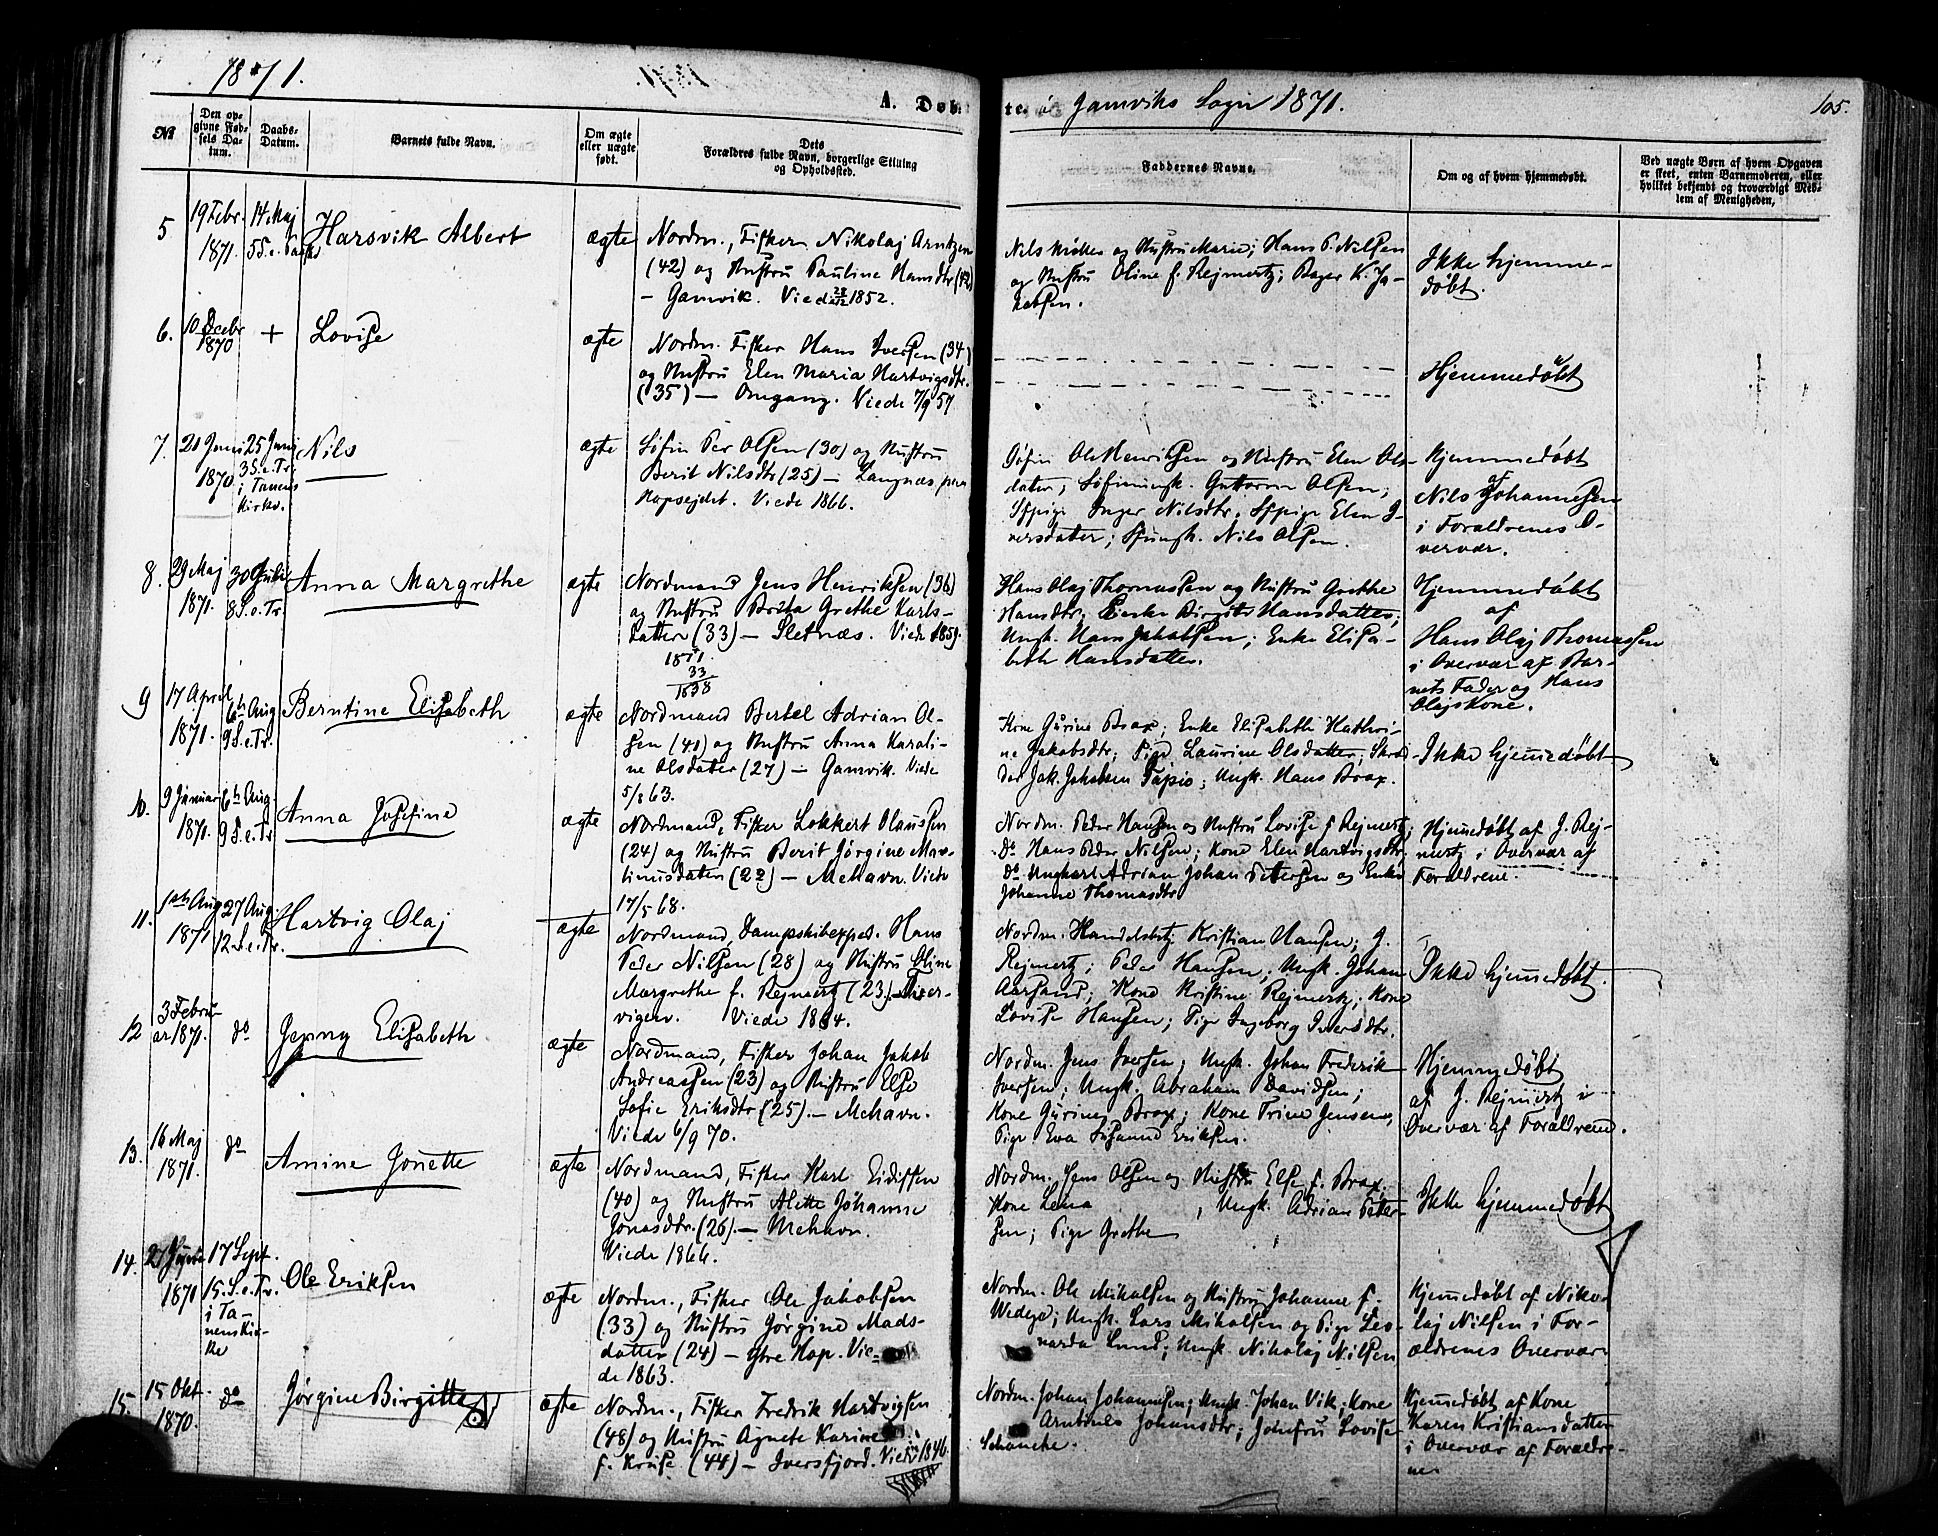 1871.
A. Døb-
te i Gamviks Sogn 1871.
105.
No
Den op-
givne Fød-
sels Da-
tum.
Daabs-
Datum.
Barnets fulde Navn.
Om ægte
eller uægte
født.
Dets
Forældres fulde Navn, borgerlige Stilling
og Opholdssted.
Faddernes Navne.
Om og af hvem hjemmedøbt.
Ved uægte Børn af hvem Opgaven
er skeet, enten Barnemoderen, eller
hvilket bekjendt og troværdigt Med-
lem af Menigheden.
5.
19 Febr.
1871.
14 Maj
5 S. e. Paaske
Harsvik Albert
ægte
Nordm., Fisker Nikolaj Arntzen
(42) og Hustru Pauline Hansdtr (42)
– Gamvik. Viede 1852.
og Hustru Marie; Hans P. Nilsen
og Hustru Oline f. Rejmertz; Bager K. Ja-
kobsen.
Ikke hjemme-
døbt.
6.
10 Decbr
1870
+
Lovise
ægte
Nordm. Fisker Hans Iversen (34)
og Hustru Elen Maria Hartvigsdtr.
(35) – Omgang. Viede 7/9 57
Hjemmedøbt
7.
21 Juni
1870
25 Juni
3 S. e. Tr.
i Tanens
Kirke.
Nils
ægte
Søfin Per Olsen (30) og Hustru
Berit Nilsdtr (25) – Langnæs paa
Hopsejdet. Viede 1866.
Søfin Ole Henriksen og Hustru Elen Ols-
datter; Søfinungk. Guttorm Olsen;
Sfpige Inger Nilsdtr; Sfpige Elen I-
versdatter; Sfungk. Nils Olsen.
Hjemmedøbt
af
Nils Johannesen
i Forældrenes O-
vervær.
8.
29 Maj
1871.
30 Juli
8 S. e. Tr.
Anna Margrethe
ægte
Nordmand Jens Henriksen (36)
og Hustru Brita Grethe Karls-
datter (33) – Sletnæs. Viede 1859.
1871
33
1838
Hans Olaj Thomassen og Hustru Grethe
Hansdtr; Enke Birgit Hansdatter;
Ungk. Hans Jakobsen; Enke Elisa-
beth Hansdatter.
Hjemmedøbt
af
Hans Olaj Thomassen
i Overvær af Bar-
nets Fader og Hans
Olajs Kone.
9
17 April
1871.
6te Aug
9 S. e. Tr.
Berntine Elisabeth
ægte
Nordmand Bertel Adrian Ol-
sen (41) og Hustru Anna Karoli-
ne Olsdatter (27) – Gamvik. Viede
5/8 63.
Kone Gurine Brax; Enke Elisabeth Kathri-
ne Jakobsdtr; Pige Laurine Olsdatter; Skræd-
der Jak. Jakobsen Tapio; Ungk. Hans Brax.
Ikke hjemmedøbt
10.
9 Januar
1871.
6te Aug.
9 S. e. Tr.
Anna Josefine
ægte
Nordmand, Fisker Lokkert Olaussen
(24) og Hustru Berit Jørgine Mar-
tinusdatter (22) – Mehavn. Viede
17/5 68.
Nordm. Peder Hansen og Hustru Lovise f. Rejmertz;
Do Hans Peder Nilsen; Kone Elen Hartvigsdtr
Do Ungkarl Adrian Johan Petersen og Enke
Johanne Thomasdtr
Hjemmedøbt af J. Rej-
mertz i Overvær af
Forældrene.
11.
1ste Aug
1871
27 Aug.
12 S. e. Tr.
Hartvig Olaj
ægte
Nordmand, Dampskibsexped. Hans
Peder Nilsen (28) og Hustru Oline
Margrethe f. Rejmertz (23) –
vigen. Viede 1864.
Nordm. Handelsbetj. Kristian Hansen; J.
Rejmertz; Peder Hansen; Ungk. Johan
Aarsand; Kone Kristine Rejmertz; Kone
Lovise Hansen; Pige Ingeborg Iversdtr.
Ikke hjemmedøbt.
12
3 Febru-
ar 1871.
do
Jenny Elisabeth
ægte
Nordmand, Fisker Johan Jakob
Andreassen (23) og Hustru Else
Sofie Eriksdtr (25). – Mehavn.
Viede 6/9 70.
Nordm. Jens Iversen; Ungk. Johan Frederik
Iversen; Ungk. Abraham Davidsen;
Kone Gurine Brax; Kone Trine Jensen,
Pige Eva Susanne Eriksen.
Hjemmedøbt
af J. Rejmertz i
Overvær af Forældrene.
13.
16 Maj
1871.
do
Amine Jonette
ægte
Nordmand, Fisker Karl Eidissen
(40) og Hustru Alette Johanne
Jonasdtr. (26) – Mehavn.
Viede 1866.
Nordm. Jens Olsen og Hustru Else f. Brax.
Kone Lena , Ungk. Adrian Peter-
sen; Pige Grethe
Ikke hjemmedøbt
14.
1870
17 Sept.
15. S. e. Tr.
i Ta-
nens Kir-
ke
Ole Eriksen
ægte
Nordm., Fisker Ole Jakobsen
(33) og Hustru Jørgine Mads-
datter (24) – Ytre Hop. Vie-
de 1863.
Nordm. Ole Mikalsen og Hustru Johanne f.
Wedege; Ungk. Lars Mikalsen og Pige Leo-
narda Lund; Ungk. Nikolaj Nilsen
Hjemmedøbt af Niko-
laj Nilsen i For-
ældrenes Overvær
15.
15 Okt.
1870.
do
Jørgine Birgitte
ægte
Nordm., Fisker Fredrik Hartvigsen
(48) og Hustru Agnete Karine
f. Kruse (44) – Iversfjord. Viede 1846.
Nordm. Johan Johannesen; Ungk. Johan Vik; Kone
Arntines Johansdtr; Jomfru Lovise
Schanche.
Hjemmedøbt af Kone
Karen Kristiansdatter
i Overvær af Forældre-
ne